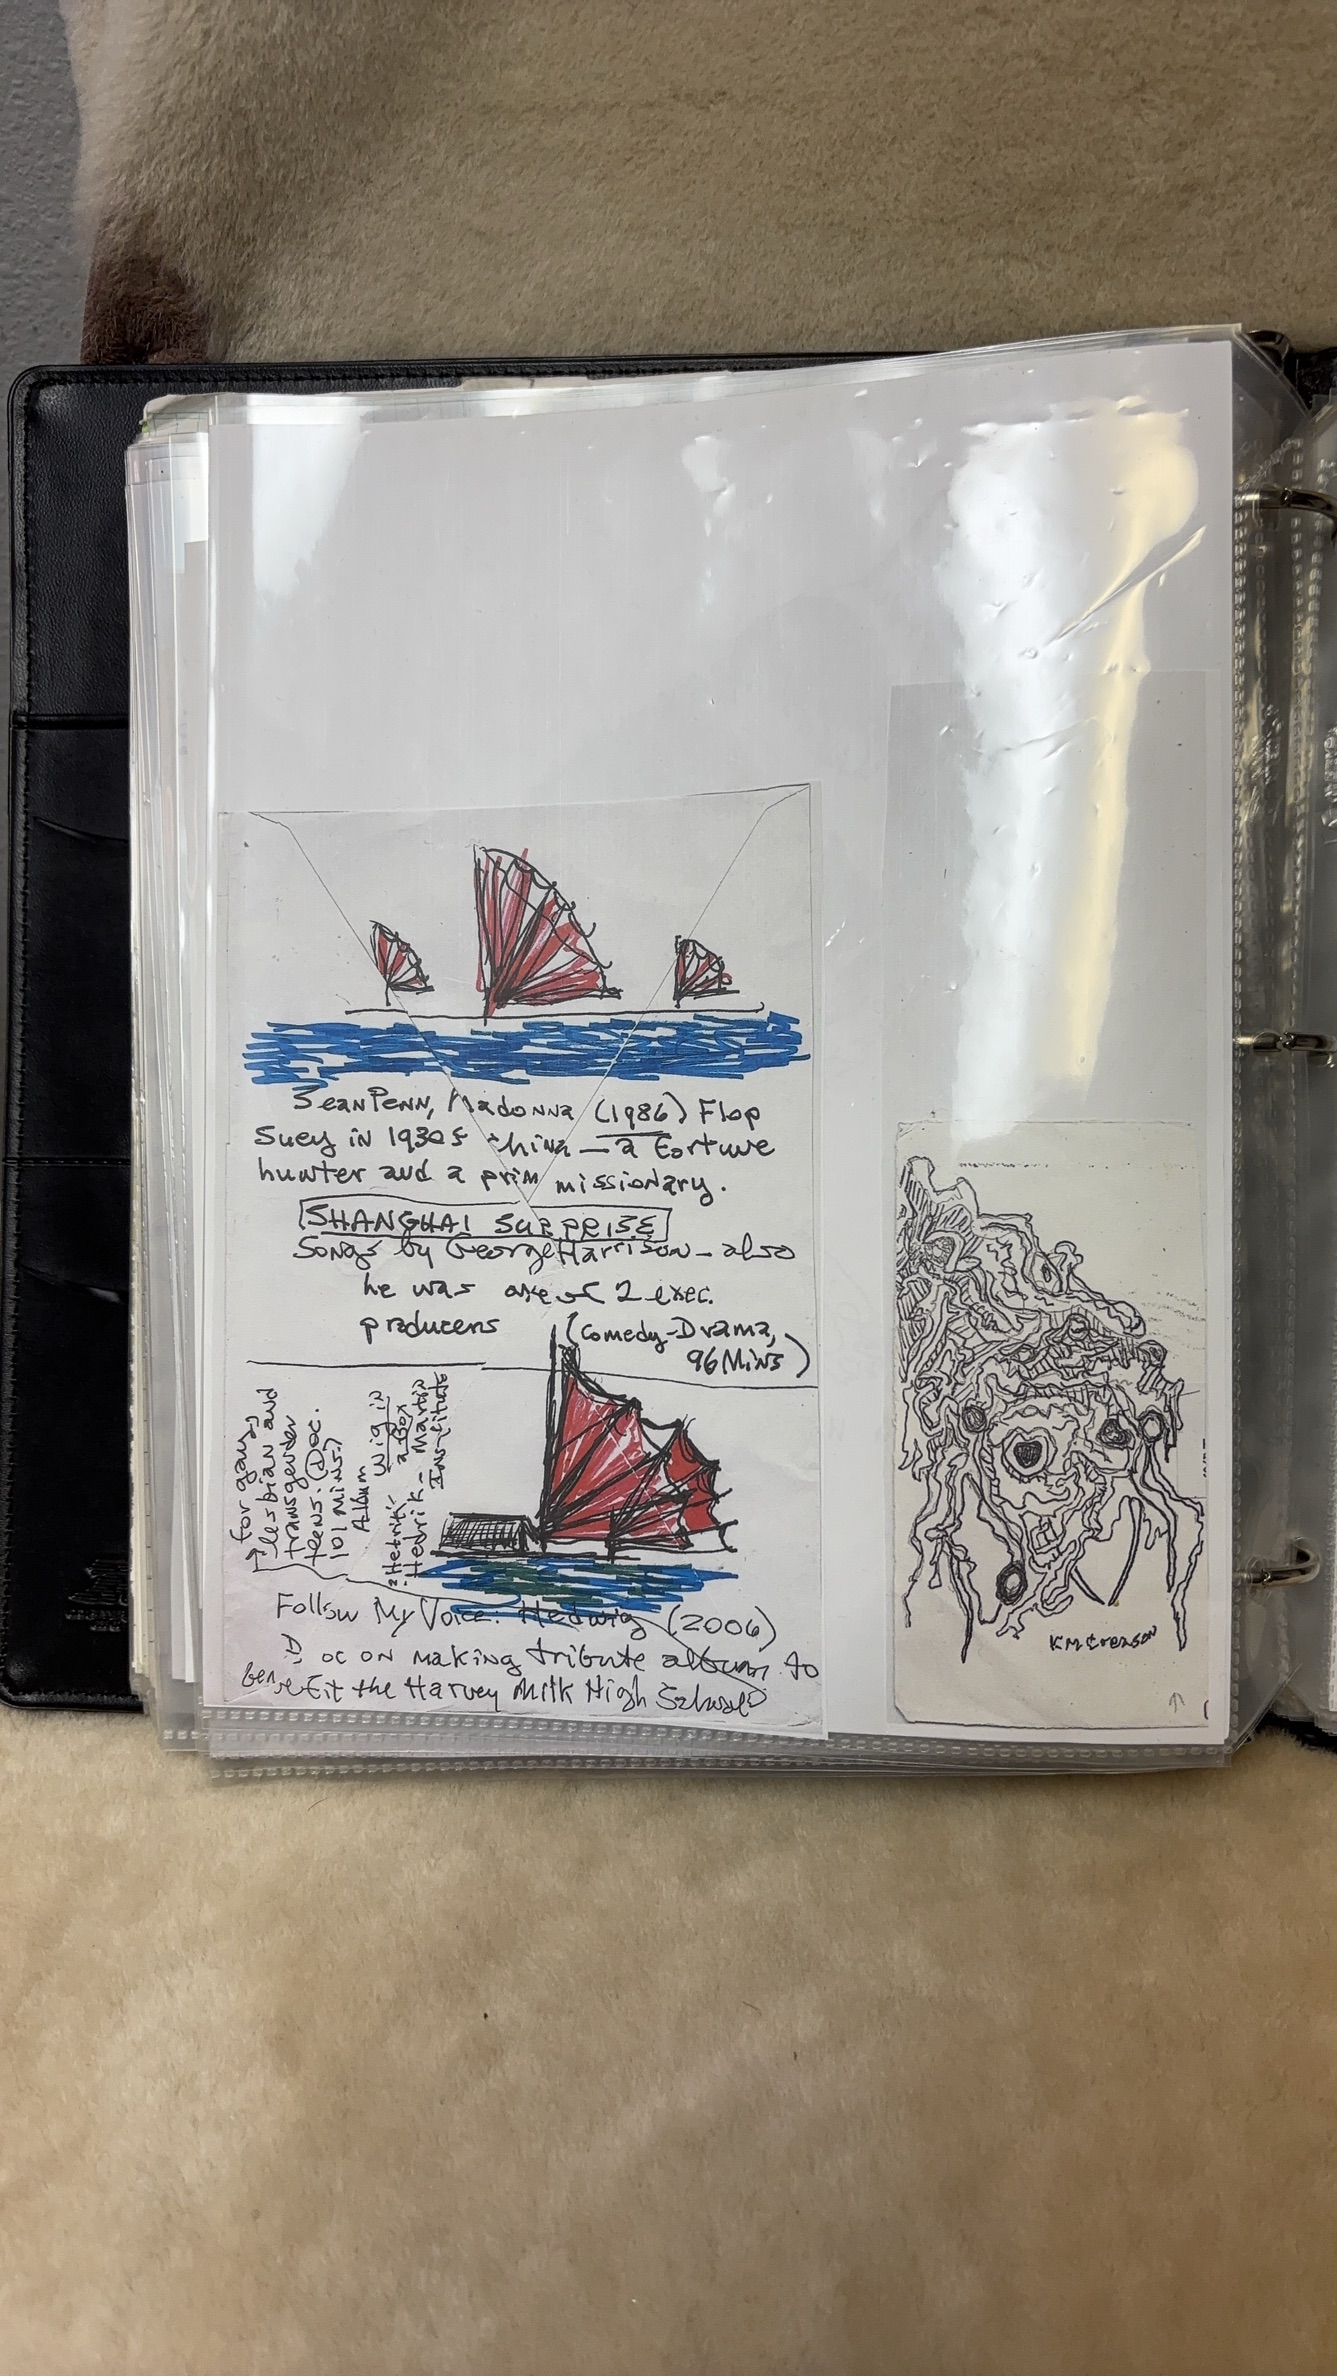 Sean Penn, Madonna (1986) Flop
Suey in 1930s China — a Fortune
hunter and a prim missionary.
SHANGHAI SURPRISE
Songs by George Harrison - also
he was one of 2 exec.
producers
(Comedy-Drama,
96 Mins)
for gay,
lesbian and
transgender
teens. (Doc.
101 Mins.)
Album
Wig in
a Box
Hetrik
Hedrik - Martin
Institute
Follow My Voice: Hedwig (2006)
Doc on making tribute album to
benefit the Harvey Milk High School
KM Creason